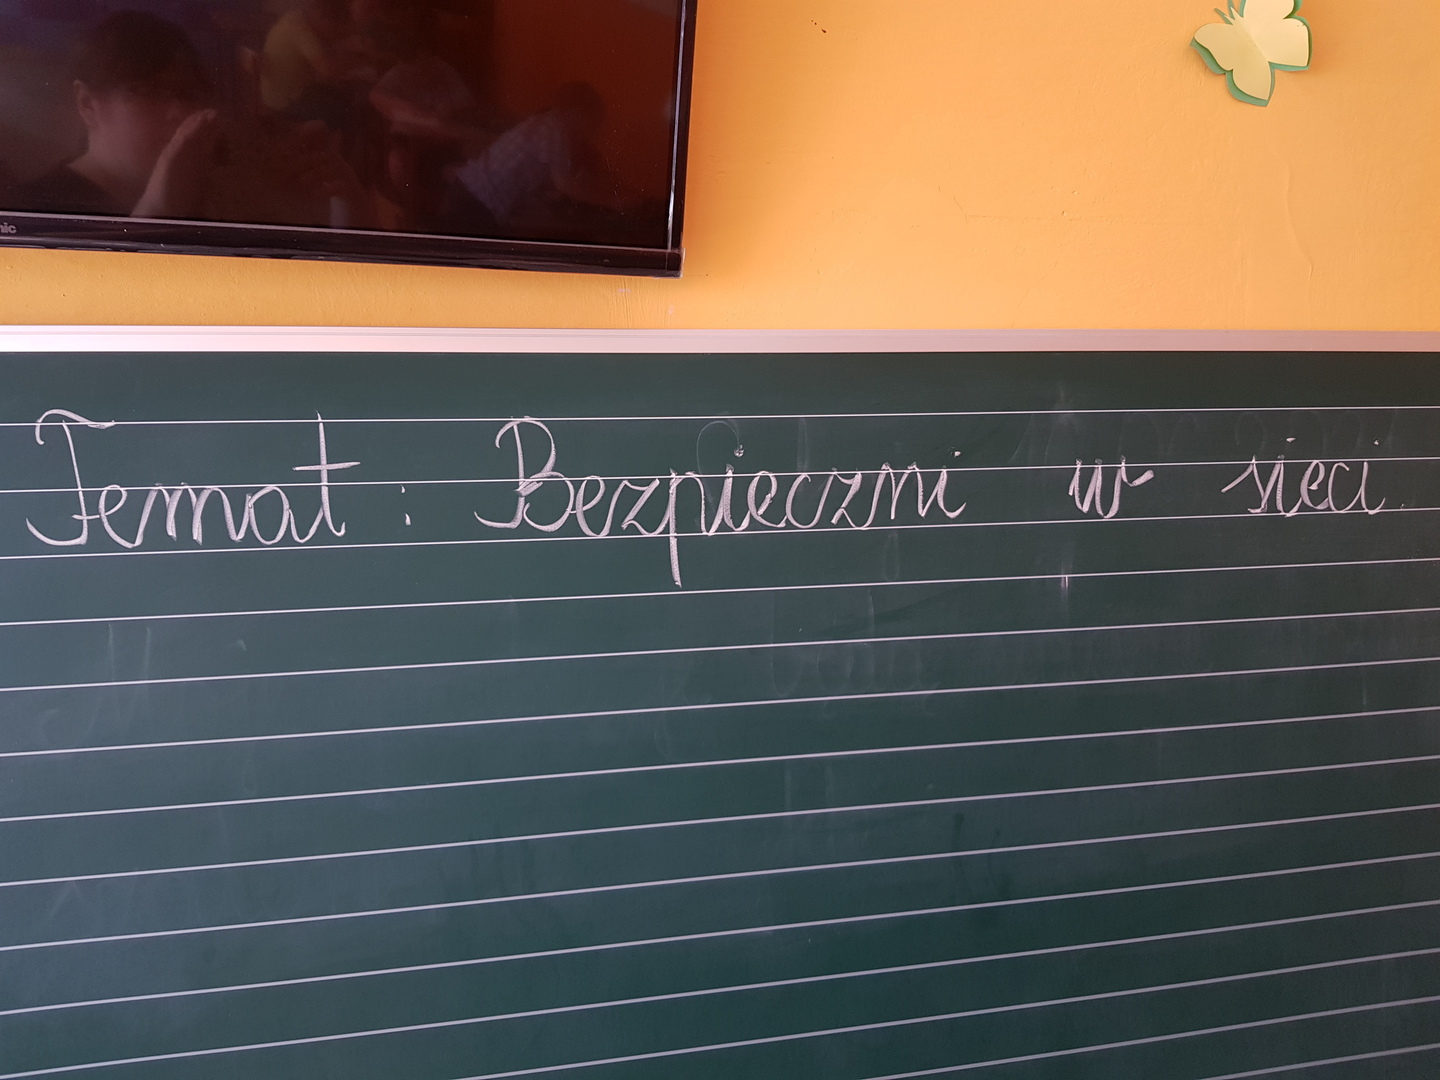 nic
Temat: Bezpieczni w sieci.